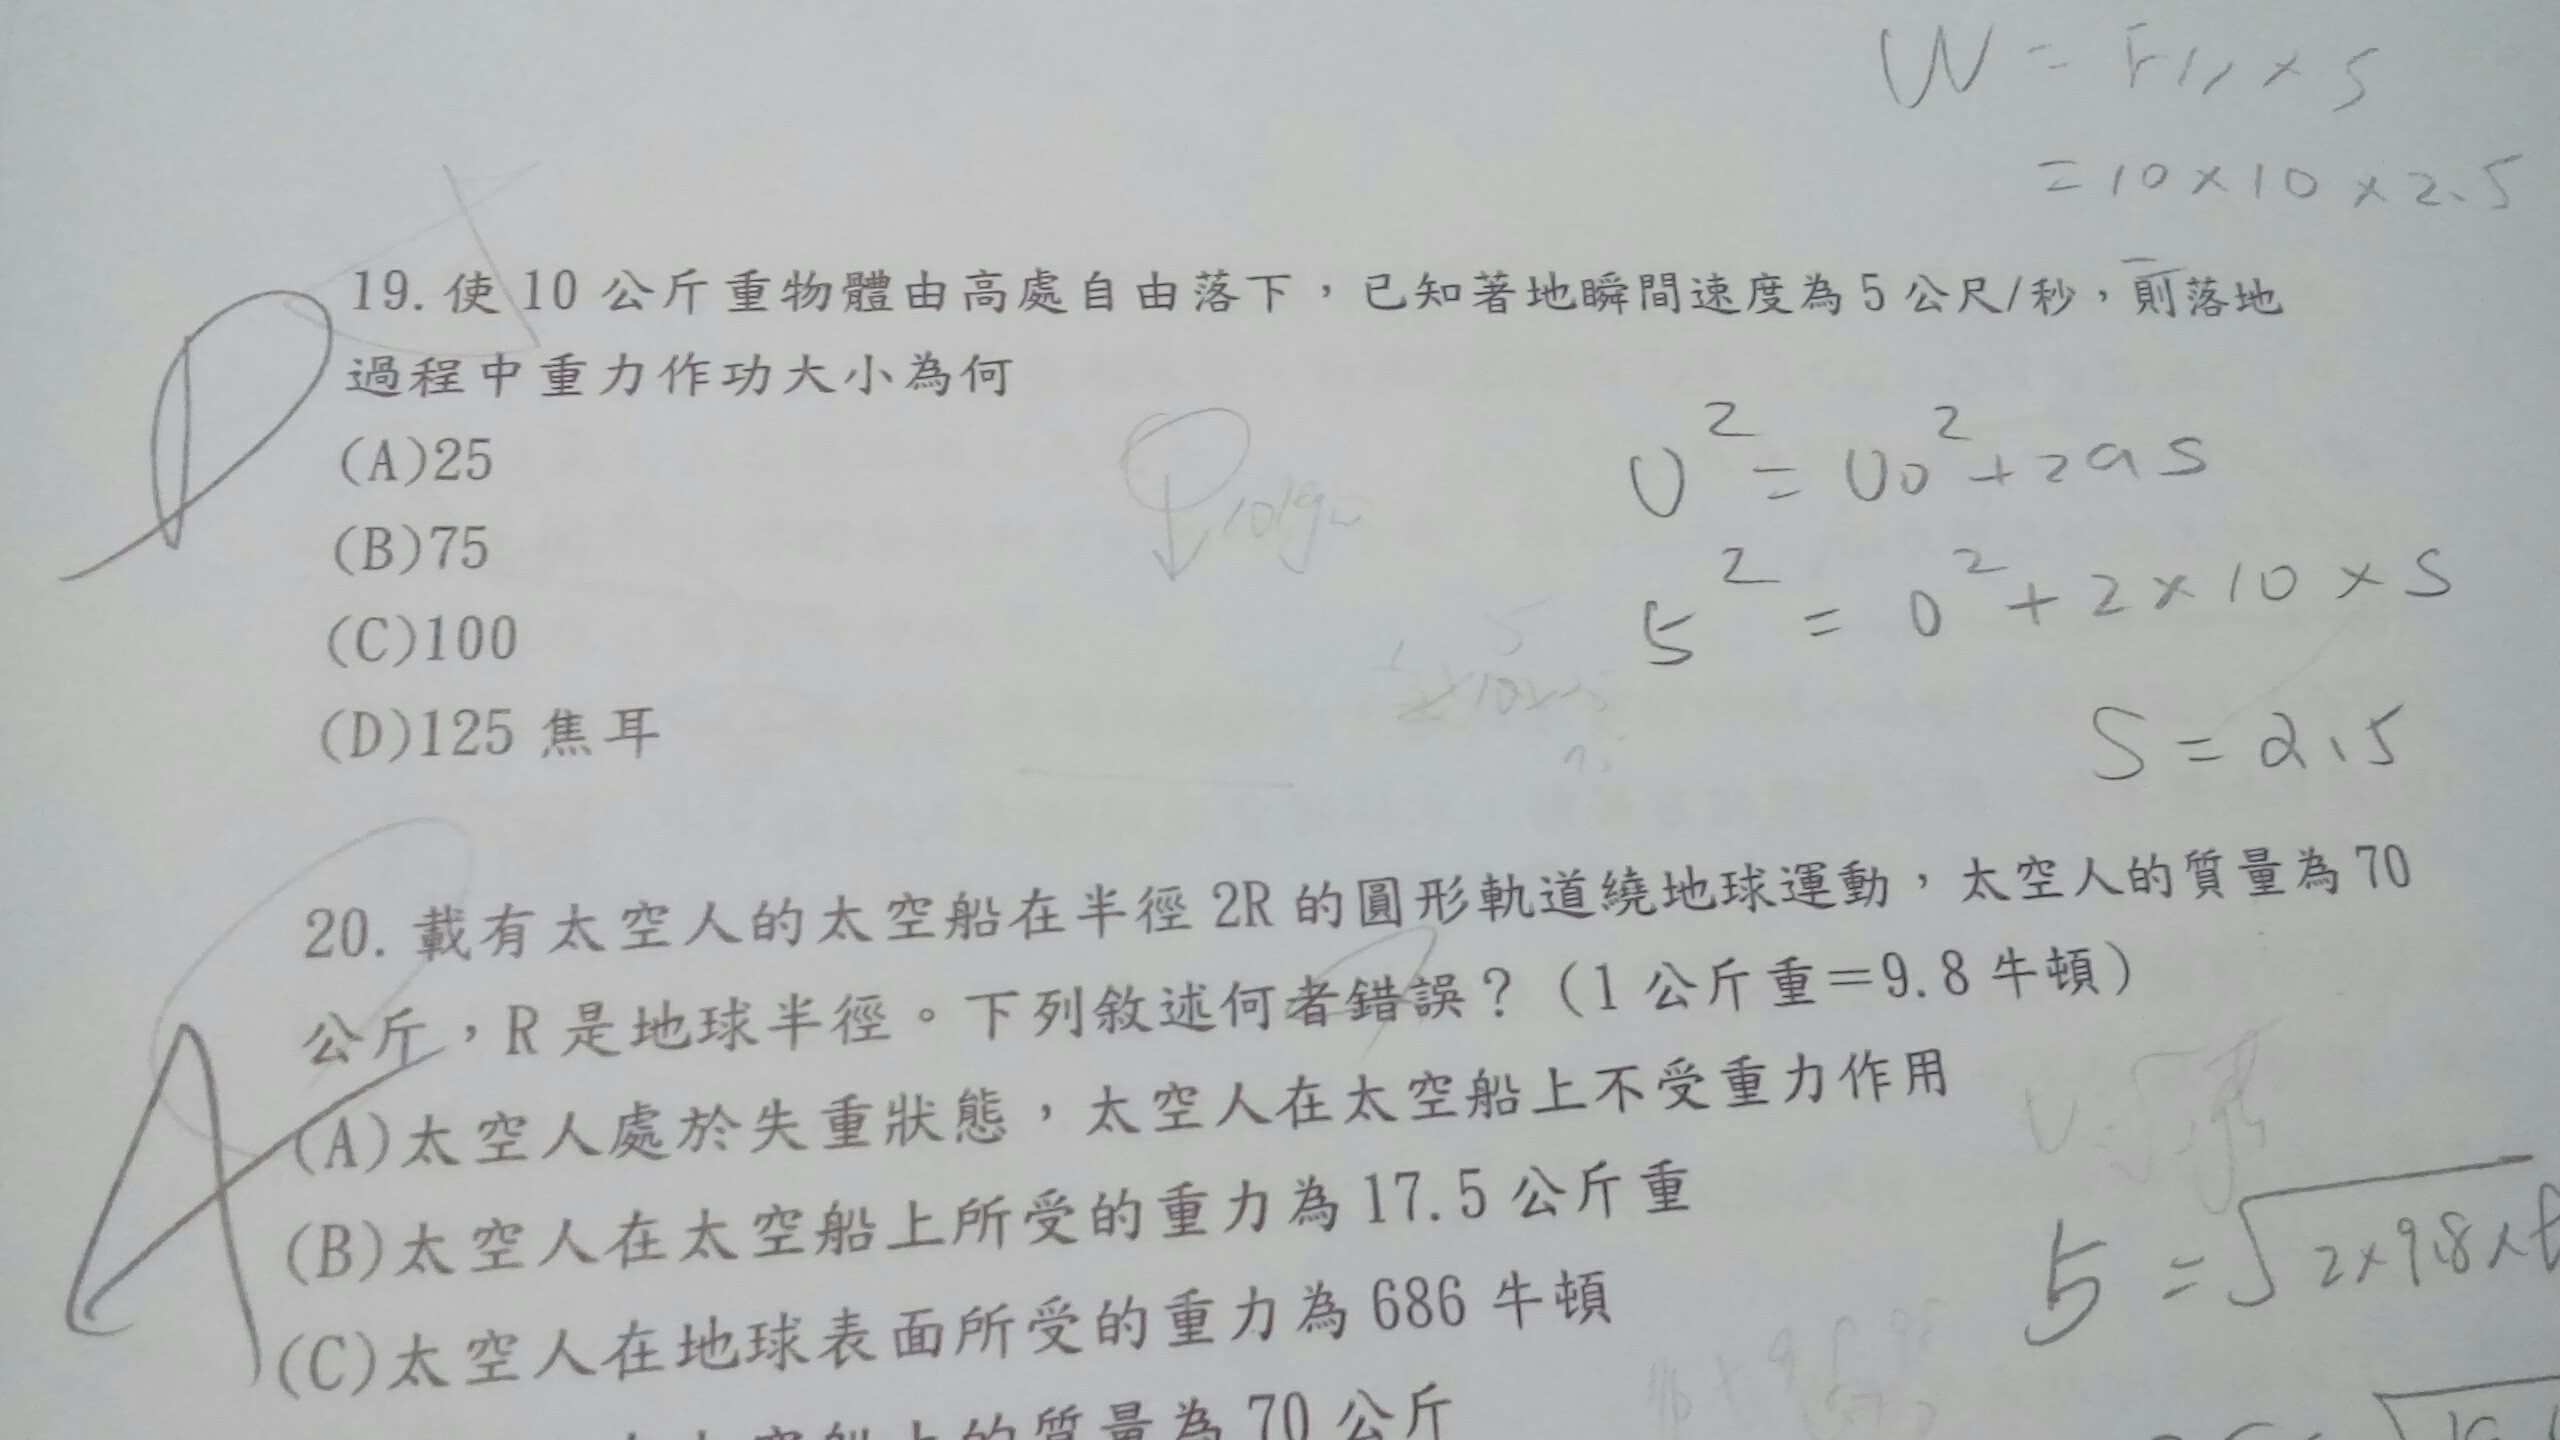 W = F// × S
= 10 × 10 × 2.5
19. 使 10 公斤重物體由高處自由落下，已知著地瞬間速度為 5 公尺/秒，則落地
過程中重力作功大小為何
D
(A)25
(B)75
(C)100
(D)125 焦耳
V² = V0² + 2as
5² = 0² + 2 × 10 × S
S = 2.5
20. 載有太空人的太空船在半徑 2R 的圓形軌道繞地球運動，太空人的質量為 70
公斤，R 是地球半徑。下列敘述何者錯誤？（1 公斤重＝9.8 牛頓）
A
(A)太空人處於失重狀態，太空人在太空船上不受重力作用
(B)太空人在太空船上所受的重力為 17.5 公斤重
(C)太空人在地球表面所受的重力為 686 牛頓
太空船上的質量為 70 公斤
5 = √2×9.8×